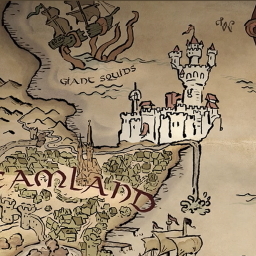 GIANT SQUIDS
AMLAND